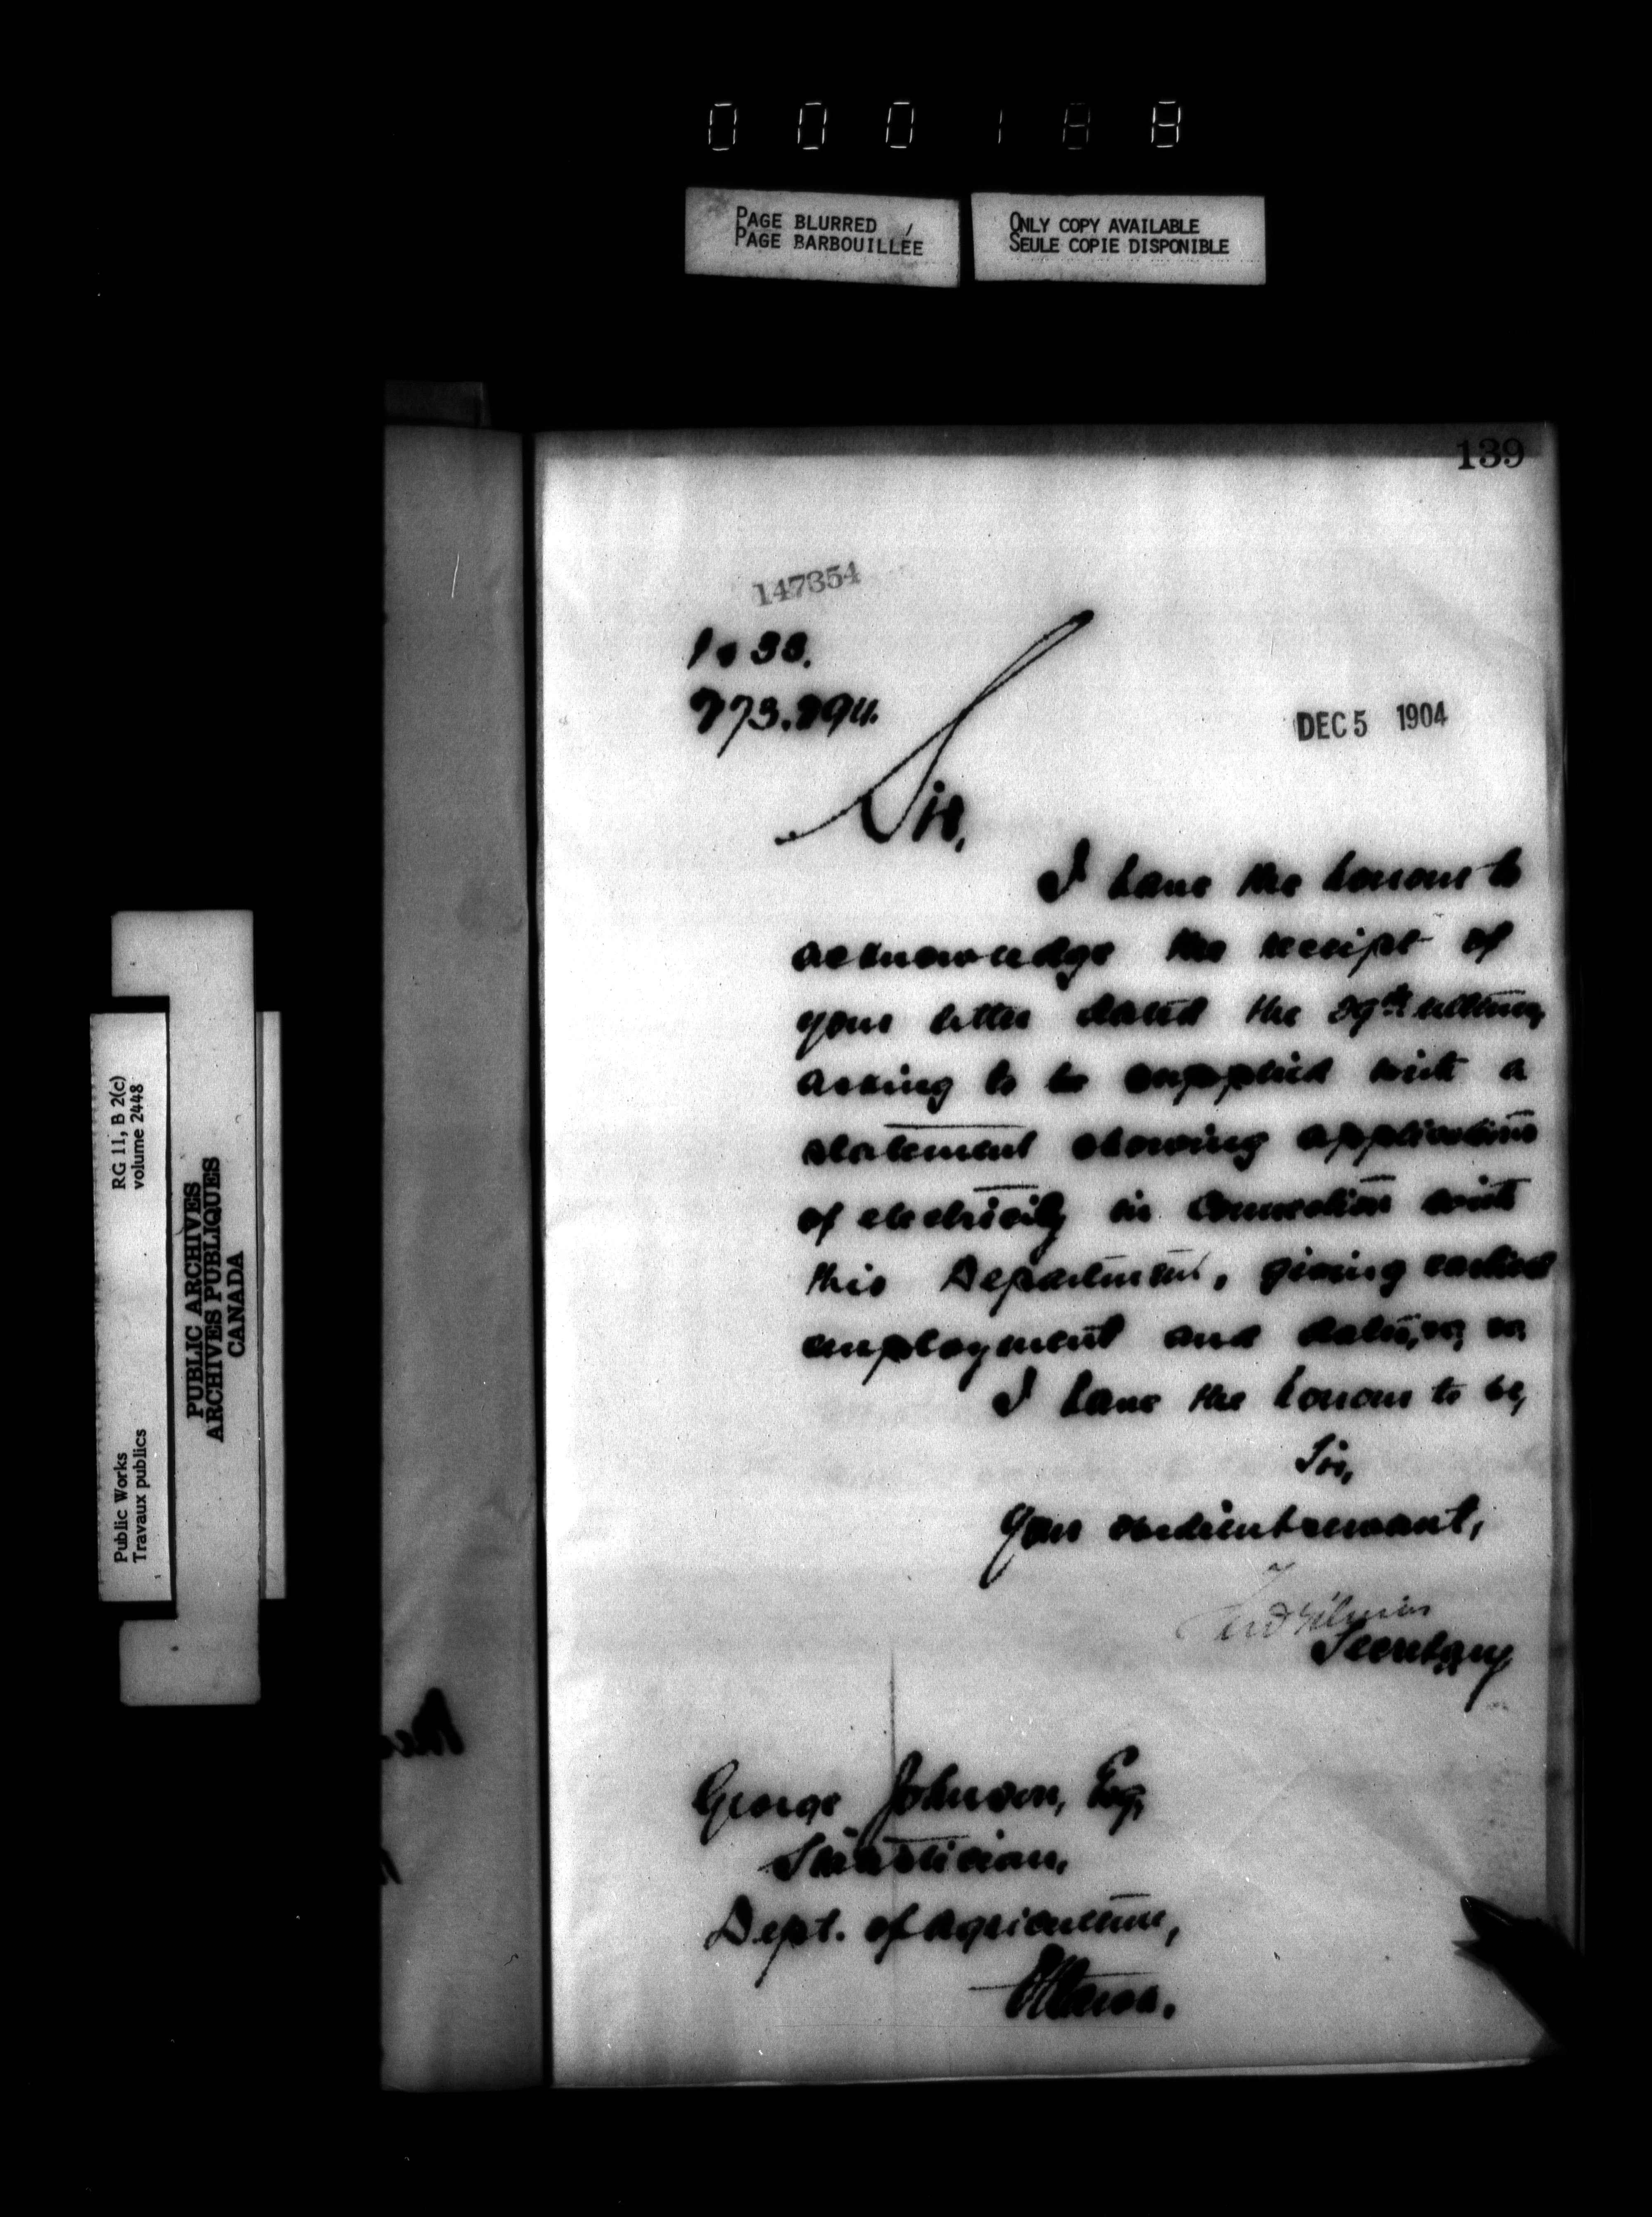 PAGE BLURRED
PAGE BARBOUILLÉE
ONLY COPY AVAILABLE
SEULE COPIE DISPONIBLE
139
147354
DEC 5 1904
Sir,
I have the honour to
acknowledge the receipt of
your letter dated the 29th ultimo,
asking to be supplied with a
statement showing applications
of electricity in connection with
this Department, giving earliest
employment and dates,
I have the honour to be,
Sir,
Your obedient servant,
Secretary
George Johnson, Esq,
Statistician,
Dept. of Agriculture,
Ottawa.
RG 11, B 2(c)
volume 2448
Public Works
Travaux publics
PUBLIC ARCHIVES
ARCHIVES PUBLIQUES
CANADA